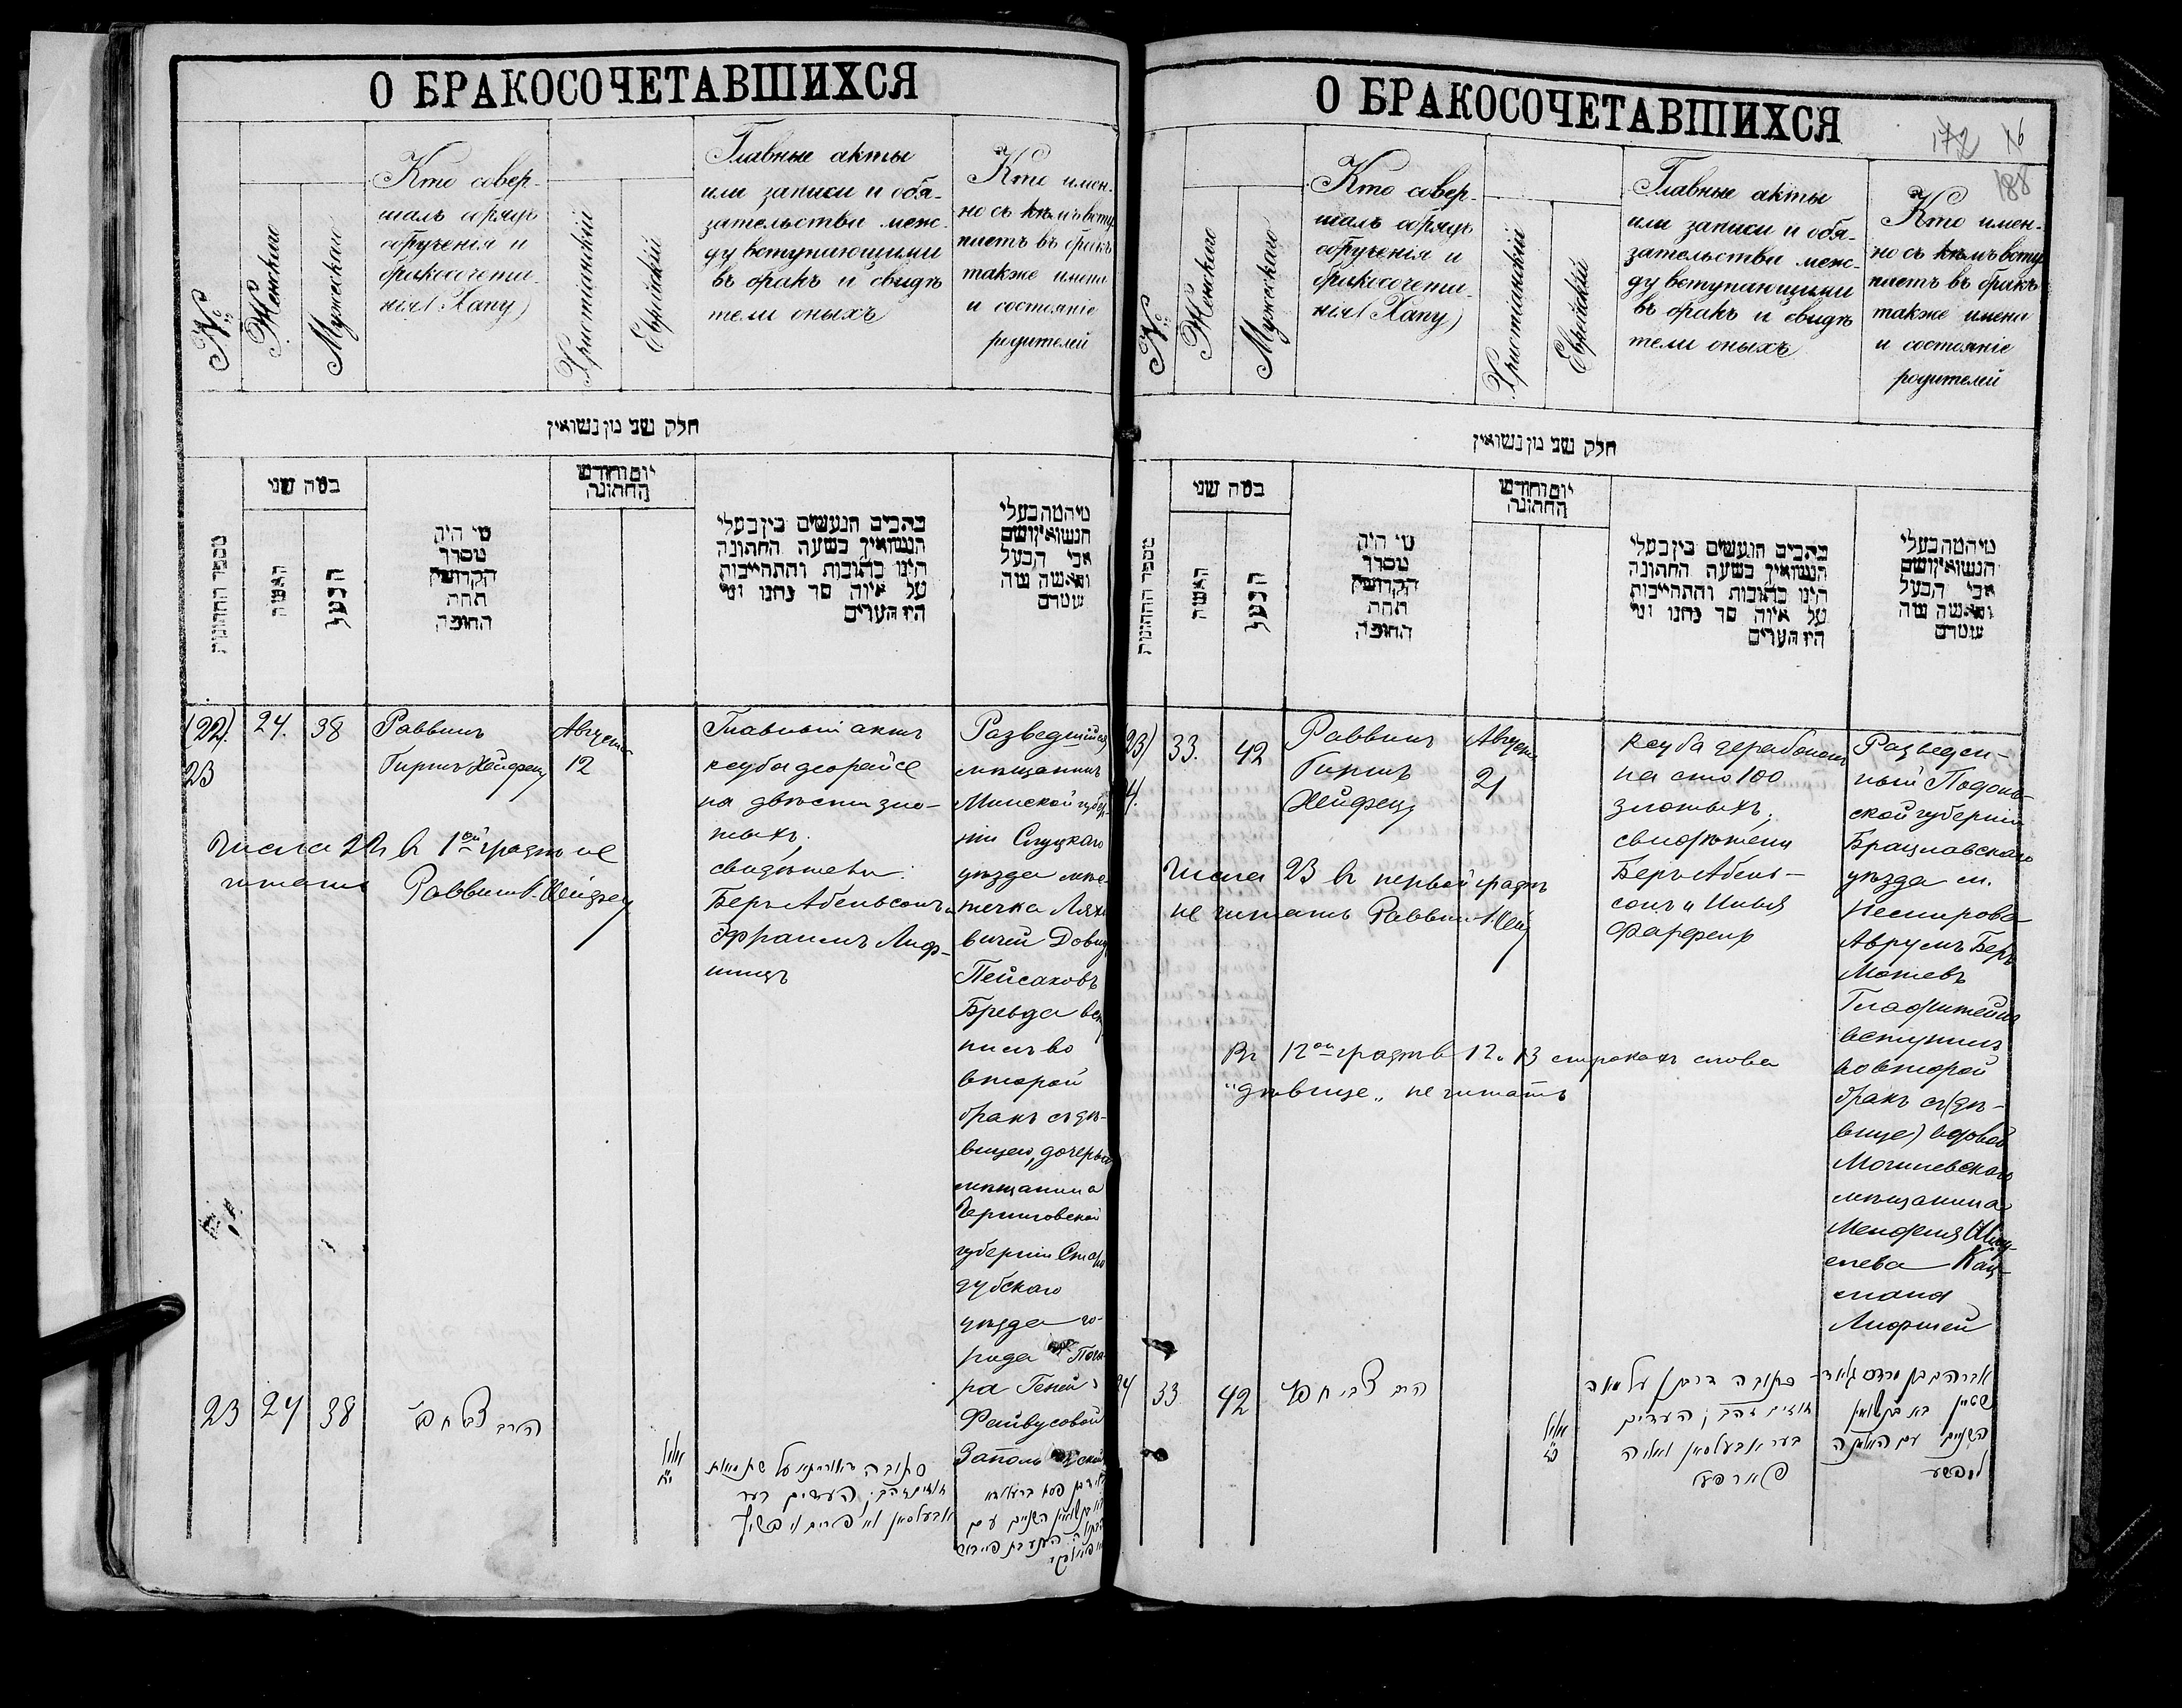 О БРАКОСОЧЕТАВШИХСЯ
№
Женскаго
Мужескаго
Кто совер-
шалъ обрядъ
обрученія и
бракосочета-
нія (Хапу)
Христіанскій
Еврейскій
Главные акты
или записи и обя-
зательства меж-
ду вступающими
въ бракъ и свидѣ
тели оныхъ
Кто имен-
но съ кѣмъ всту
паетъ въ бракъ
также имена
и состояніе
родителей
חלק שני מן נשואין
מספר החתונות
כמה שני
האשה
הבעל
מי היה
מסדר
הקדושין
תחת
החופה
יום וחודש
החתונה
כתבים הנעשים בין בעלי
הנשואין בשעה החתונה
היינו כתובות והתחייבות
על איזה סך נתנו ומי
היו העדים
מי המה בעלי
הנשואין ושם
אבי הבעל
והאשה
22).
23
24.
38
Раввинъ
Гиршъ Хейфец
Августа
12
Главный актъ
ксуба деорайсе
на двѣсти зло-
тыхъ,
свидѣтели:
Беръ Абельсонъ и
Эфраимъ Лиф-
шицъ
Разведшійся
мѣщанинъ
Минской губер-
ніи Слуцкаго
уѣзда мѣс-
течка Ляхо
вичей Довид
Пейсаховъ
Бревда всту
пилъ во
второй
бракъ съ дѣ-
вицею, дочерью
мѣщанина
Черниговской
губерніи Старо
дубскаго
уѣзда го-
рода Пога-
ра Геней
Файвусовой
Числа 22 в 1ой графѣ не
читать Раввинъ Г. Хейфец
23 24 38
הרב צבי חפץ
אלול
כתובה דאורייתא על שתי מאות
אדומים זהב; העדים בער
אבעלסאן
О БРАКОСОЧЕТАВШИХСЯ
172 16
188
№
Женскаго
Мужескаго
Кто совер-
шалъ обрядъ
обрученія и
бракосочета-
нія (Хапу)
Христіанскій
Еврейскій
Главные акты
или записи и обя-
зательства меж-
ду вступающими
въ бракъ и свидѣ
тели оныхъ
Кто имен-
но съ кѣмъ всту
паетъ въ бракъ
также имена
и состояніе
родителей
חלק שני מן נשואין
מספר החתונות
כמה שני
האשה
הבעל
מי היה
מסדר
הקדושין
תחת
החופה
יום וחודש
החתונה
כתבים הנעשים בין בעלי
הנשואין בשעה החתונה
היינו כתובות והתחייבות
על איזה סך נתנו ומי
היו העדים
מי המה בעלי
הנשואין ושם
אבי הבעל
והאשה
23)
4.
33.
42
Раввинъ
Гиршъ
Хейфец
Августа
21
ксуба дерабонан
на сто 100
злотыхъ;
свидѣтели
Беръ Абель-
сонъ и Илья
Фарфель
Разведен-
ный Подоль-
ской губерніи
Брацлавскаго
уѣзда м.
Немирова
Аврумъ Беръ
Мотевъ
вступилъ
во второй
бракъ съ (дѣ-
вице) вдовой
Могилевскаго
мѣщанина
Менделя
Числа 23 в первой графѣ
не читать Раввинъ Г. Хей
Въ 12ой графѣ в 12 и 13 строкахъ слова
"дѣвице" не читать
24 33 42
הרב צבי חפץ
אלול
כתובה דרבנן על מאה
אדומים זהב; העדים
בער אבעלסאן ואליה
פארפעל
השניים עם האלמנה